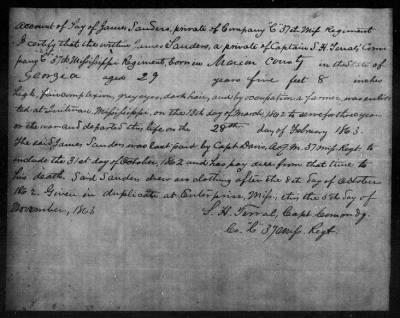 Account of Pay of James Sanders, private of Company "C" 37th Miss Regiment
I certify that the within James Sanders, a private of Captain S. H. Terral's Com
pany "C" 37th Mississippi Regiment, born in Marion County in the State of
Georgia aged 29 years five feet 8 inches
high, fair complexion, grey eyes, dark hair, and by occupation a farmer was enlis
ted at Mississippi, on the 13th day of March, 1862 to serve for three years
or the war and departed this life on the 28th day of February 1863.
The said James Sanders was last paid by Capt Davis, A.Q.M. 37 Miss Regt to
include the 31st day of October, 1862 and has pay due from that time to
his death. Said Sanders drew no clothing after the 8th day of October
1862. Given in duplicate at Enterprise, Miss, this the 5th day of
November, 1863
S. H. Terral, Capt Comondg.
Co. "C" 37 Miss. Regt.